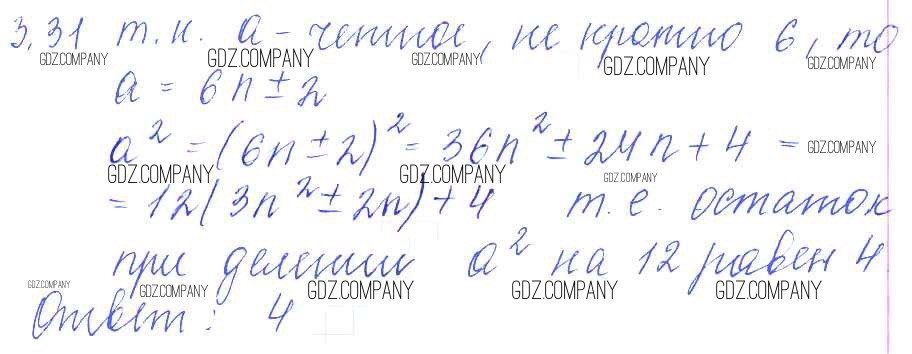 3.31 т.к. a - четное, не кратно 6, то
GDZ.COMPANY GDZ.COMPANY GDZ.COMPANY GDZ.COMPANY GDZ.COMPANY
a = 6n ± 2
a² = (6n ± 2)² = 36n² ± 24n + 4 =
GDZ.COMPANY GDZ.COMPANY GDZ.COMPANY GDZ.COMPANY
= 12(3n² ± 2n) + 4 т.е. остаток
при делении a² на 12 равен 4
GDZ.COMPANY GDZ.COMPANY GDZ.COMPANY GDZ.COMPANY GDZ.COMPANY
Ответ: 4